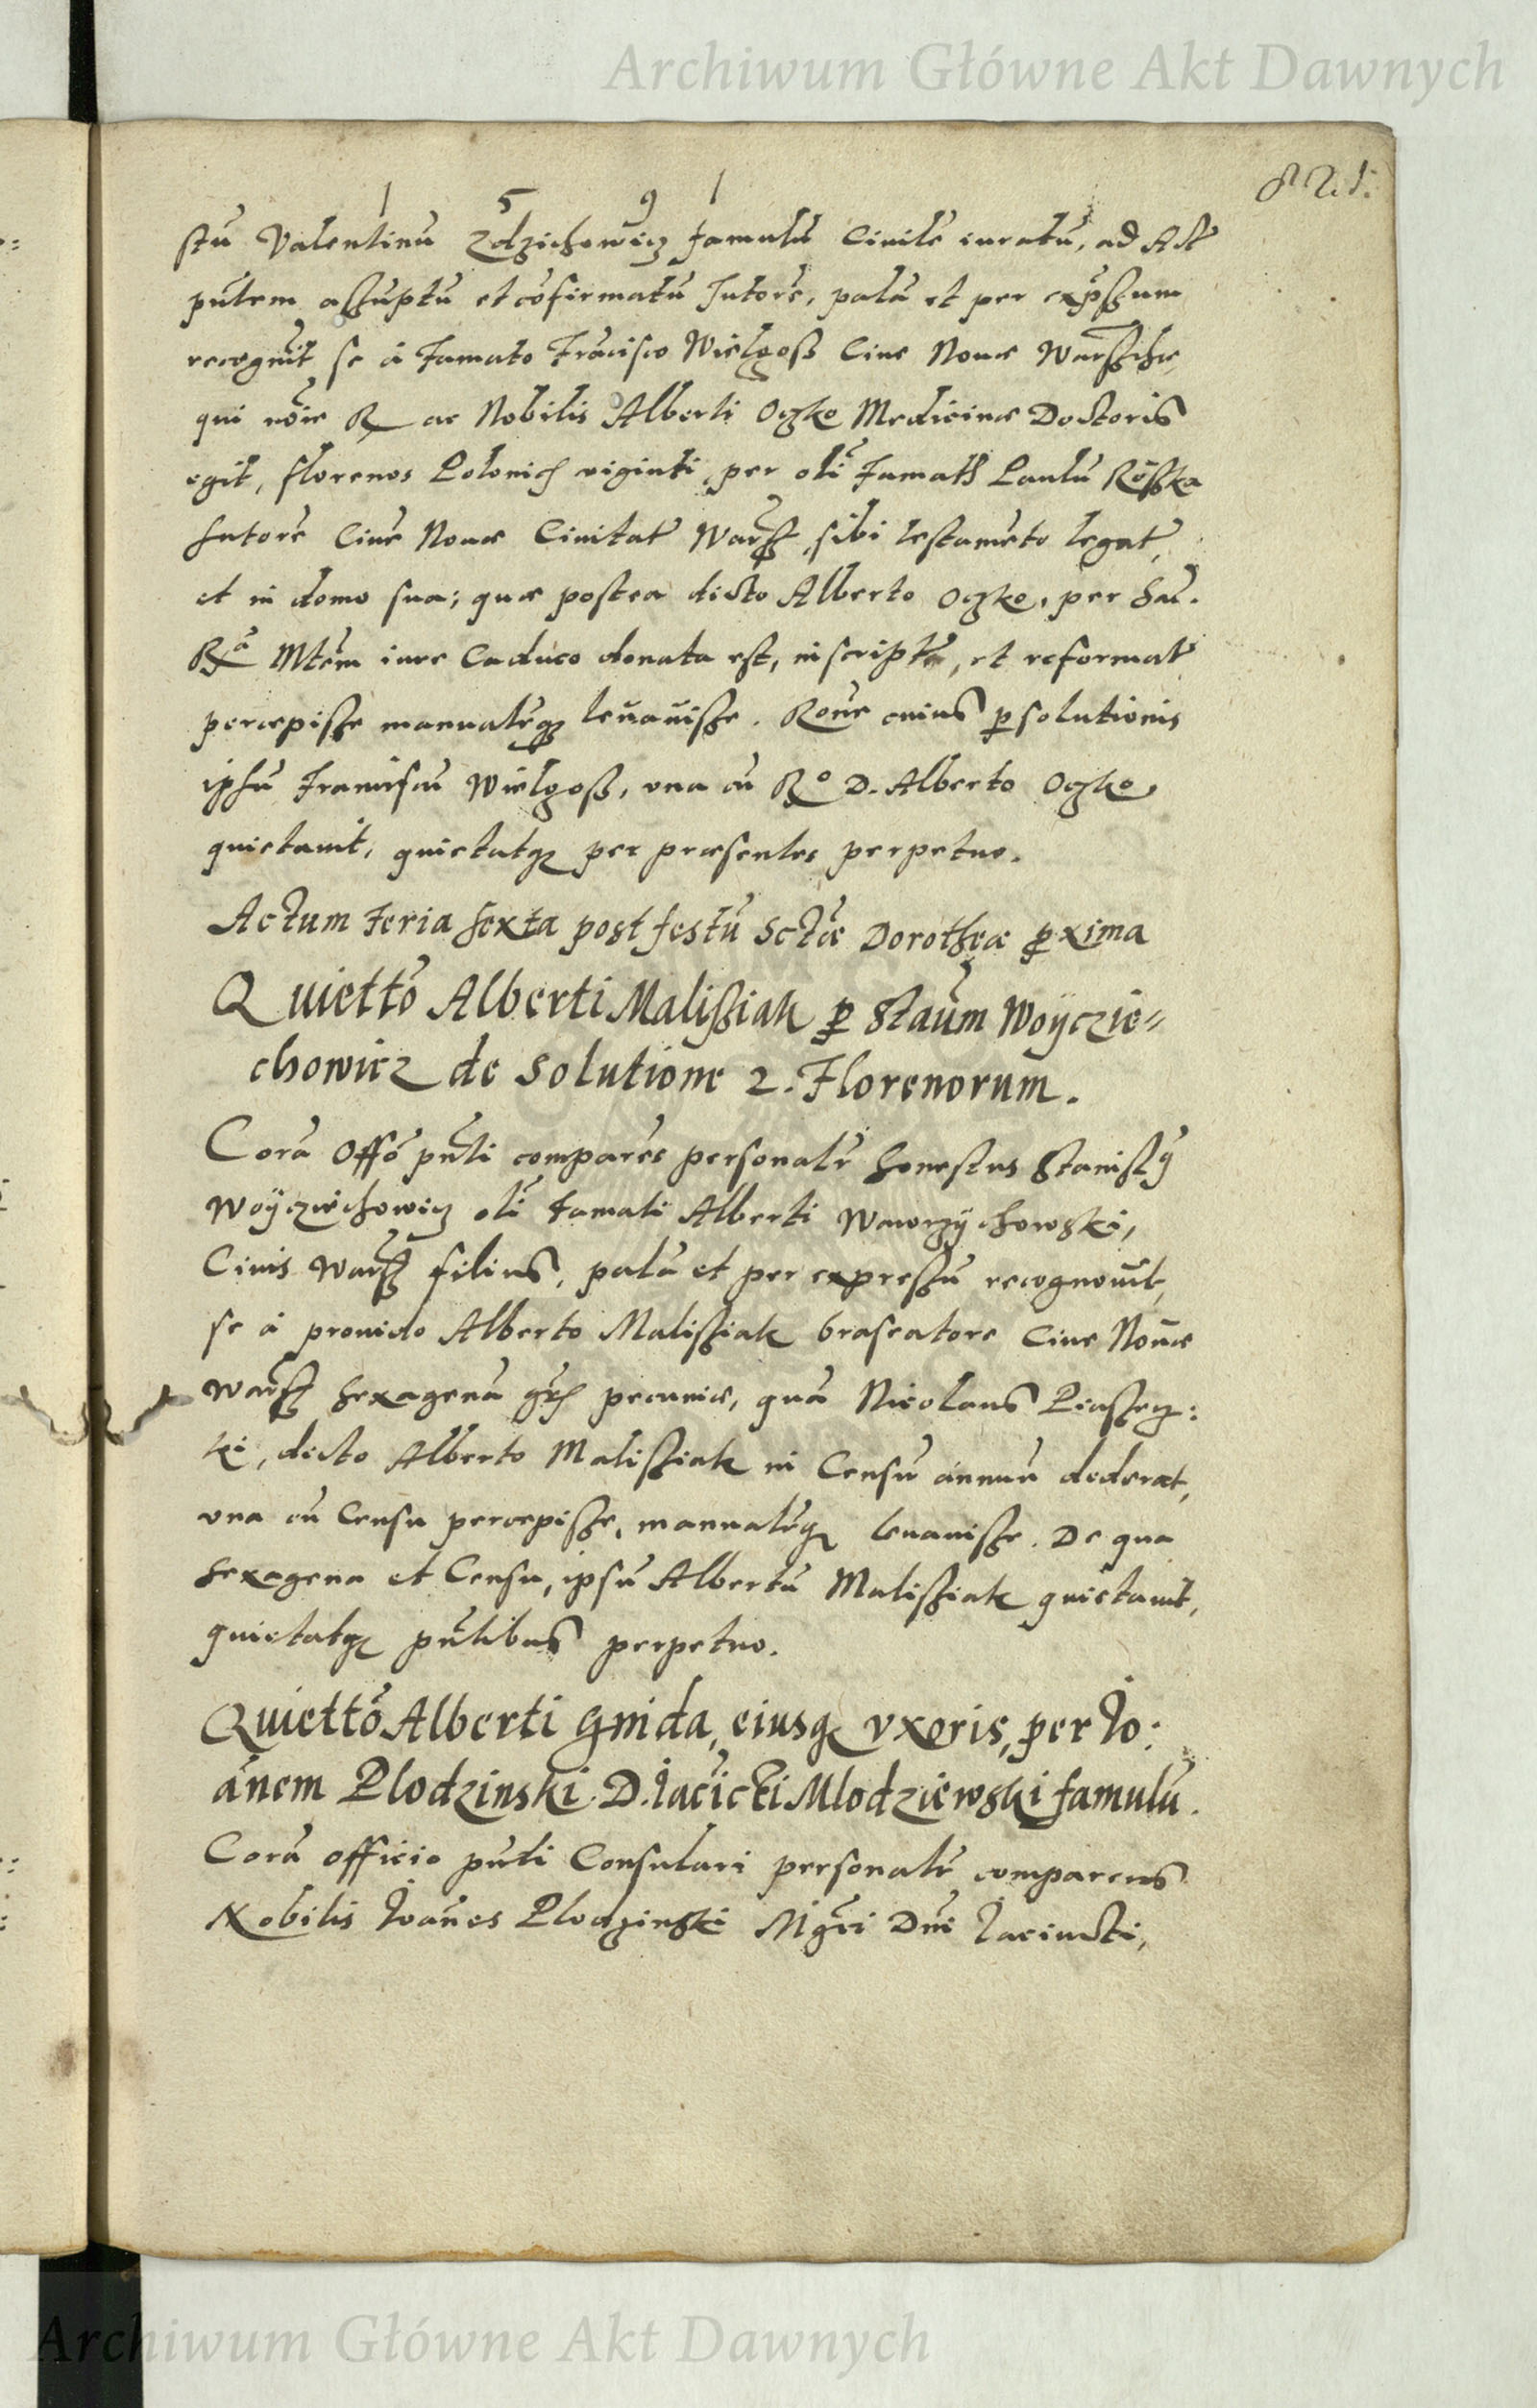 Archiwum Główne Akt Dawnych
1 5 9 1
821.
stũ Valentinũ Zdzichowicz famulũ Civilẽ iuratũ, ad Act
pñtem assũptũ et cõfirmatũ Tutorẽ, palã et per exp̃ssum
recognit se à Famato Frãcisco Wielgoss Cive Novæ Warschæ,
qui nõie R ac Nobilis Alberti Oczko Medicinæ Doctoris
egit, florenos Polonich viginti per oli Famatũ Paulũ
Sutorẽ Civẽ Novæ Civitat Warss, sibi testamẽto legat,
et in domo sua; quæ postea dicto Alberto Oczko, per Sac.
Rã Mtẽm iure Caduco donata est, inscript, et reformat
percepisse manualẽq levavisse. Rone cuius p solutionis
ipsũ Franciscũ Wielgoss, una cũ Rº D. Alberto Oczko
quietavit, quietatq per præsentes perpetuo.
Actum Feria sexta post festũ Sctæ Dorotheæ pxima
Quiettõ Alberti Malissiak p Staũm Woyczie=
chowicz de Solutione 2. Florenorum.
Corã Offõ pñti comparẽs personalr honestus Stanislg
Woyczichowicz oli Famati Alberti Wawrzychowski,
Civis Warss filius, palã et per expressũ recognovit,
se à provido Alberto Malissiak braseatore Cive Novæ
Warss sexagenã grch pecuniæ, quã Nicolaus Piassecz:
ki, dicto Alberto Malissiak in Censũ annuũ dederat,
una cũ Censu percepisse, manualẽq levavisse. De qua
sexagena et Censu, ipsũ Albertũ Malissiak quietavit,
quietatq pñtibus perpetuo.
Quiettõ Alberti Gnida, eiusq uxoris, per Jo:
ãnem Plodzinski D. Iacĩcti Mlodziewski famulũ.
Corã officio pñti Consulari personalr comparens
Nobilis Joañes Plodzinski Mgci Dñi Jacincti,
Archiwum Główne Akt Dawnych